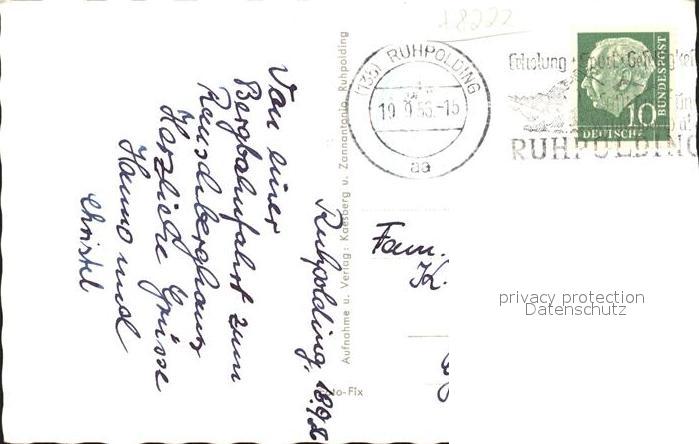 18222
(13b) RUHPOLDING
19.9.56.-15
aa
Erholung · Sport · Geselligkeit
RUHPOLDING
10
DEUTSCHE
BUNDESPOST
Ruhpolding, 18.9.
Von einer
Bergbahnfahrt zum
Rauschberghaus
Herzliche Grüsse
Hanno und
Christel
Aufnahme u. Verlag: Kaesberg u. Zannantonio, Ruhpolding
Foto-Fix
Fam.
K.
privacy protection
Datenschutz